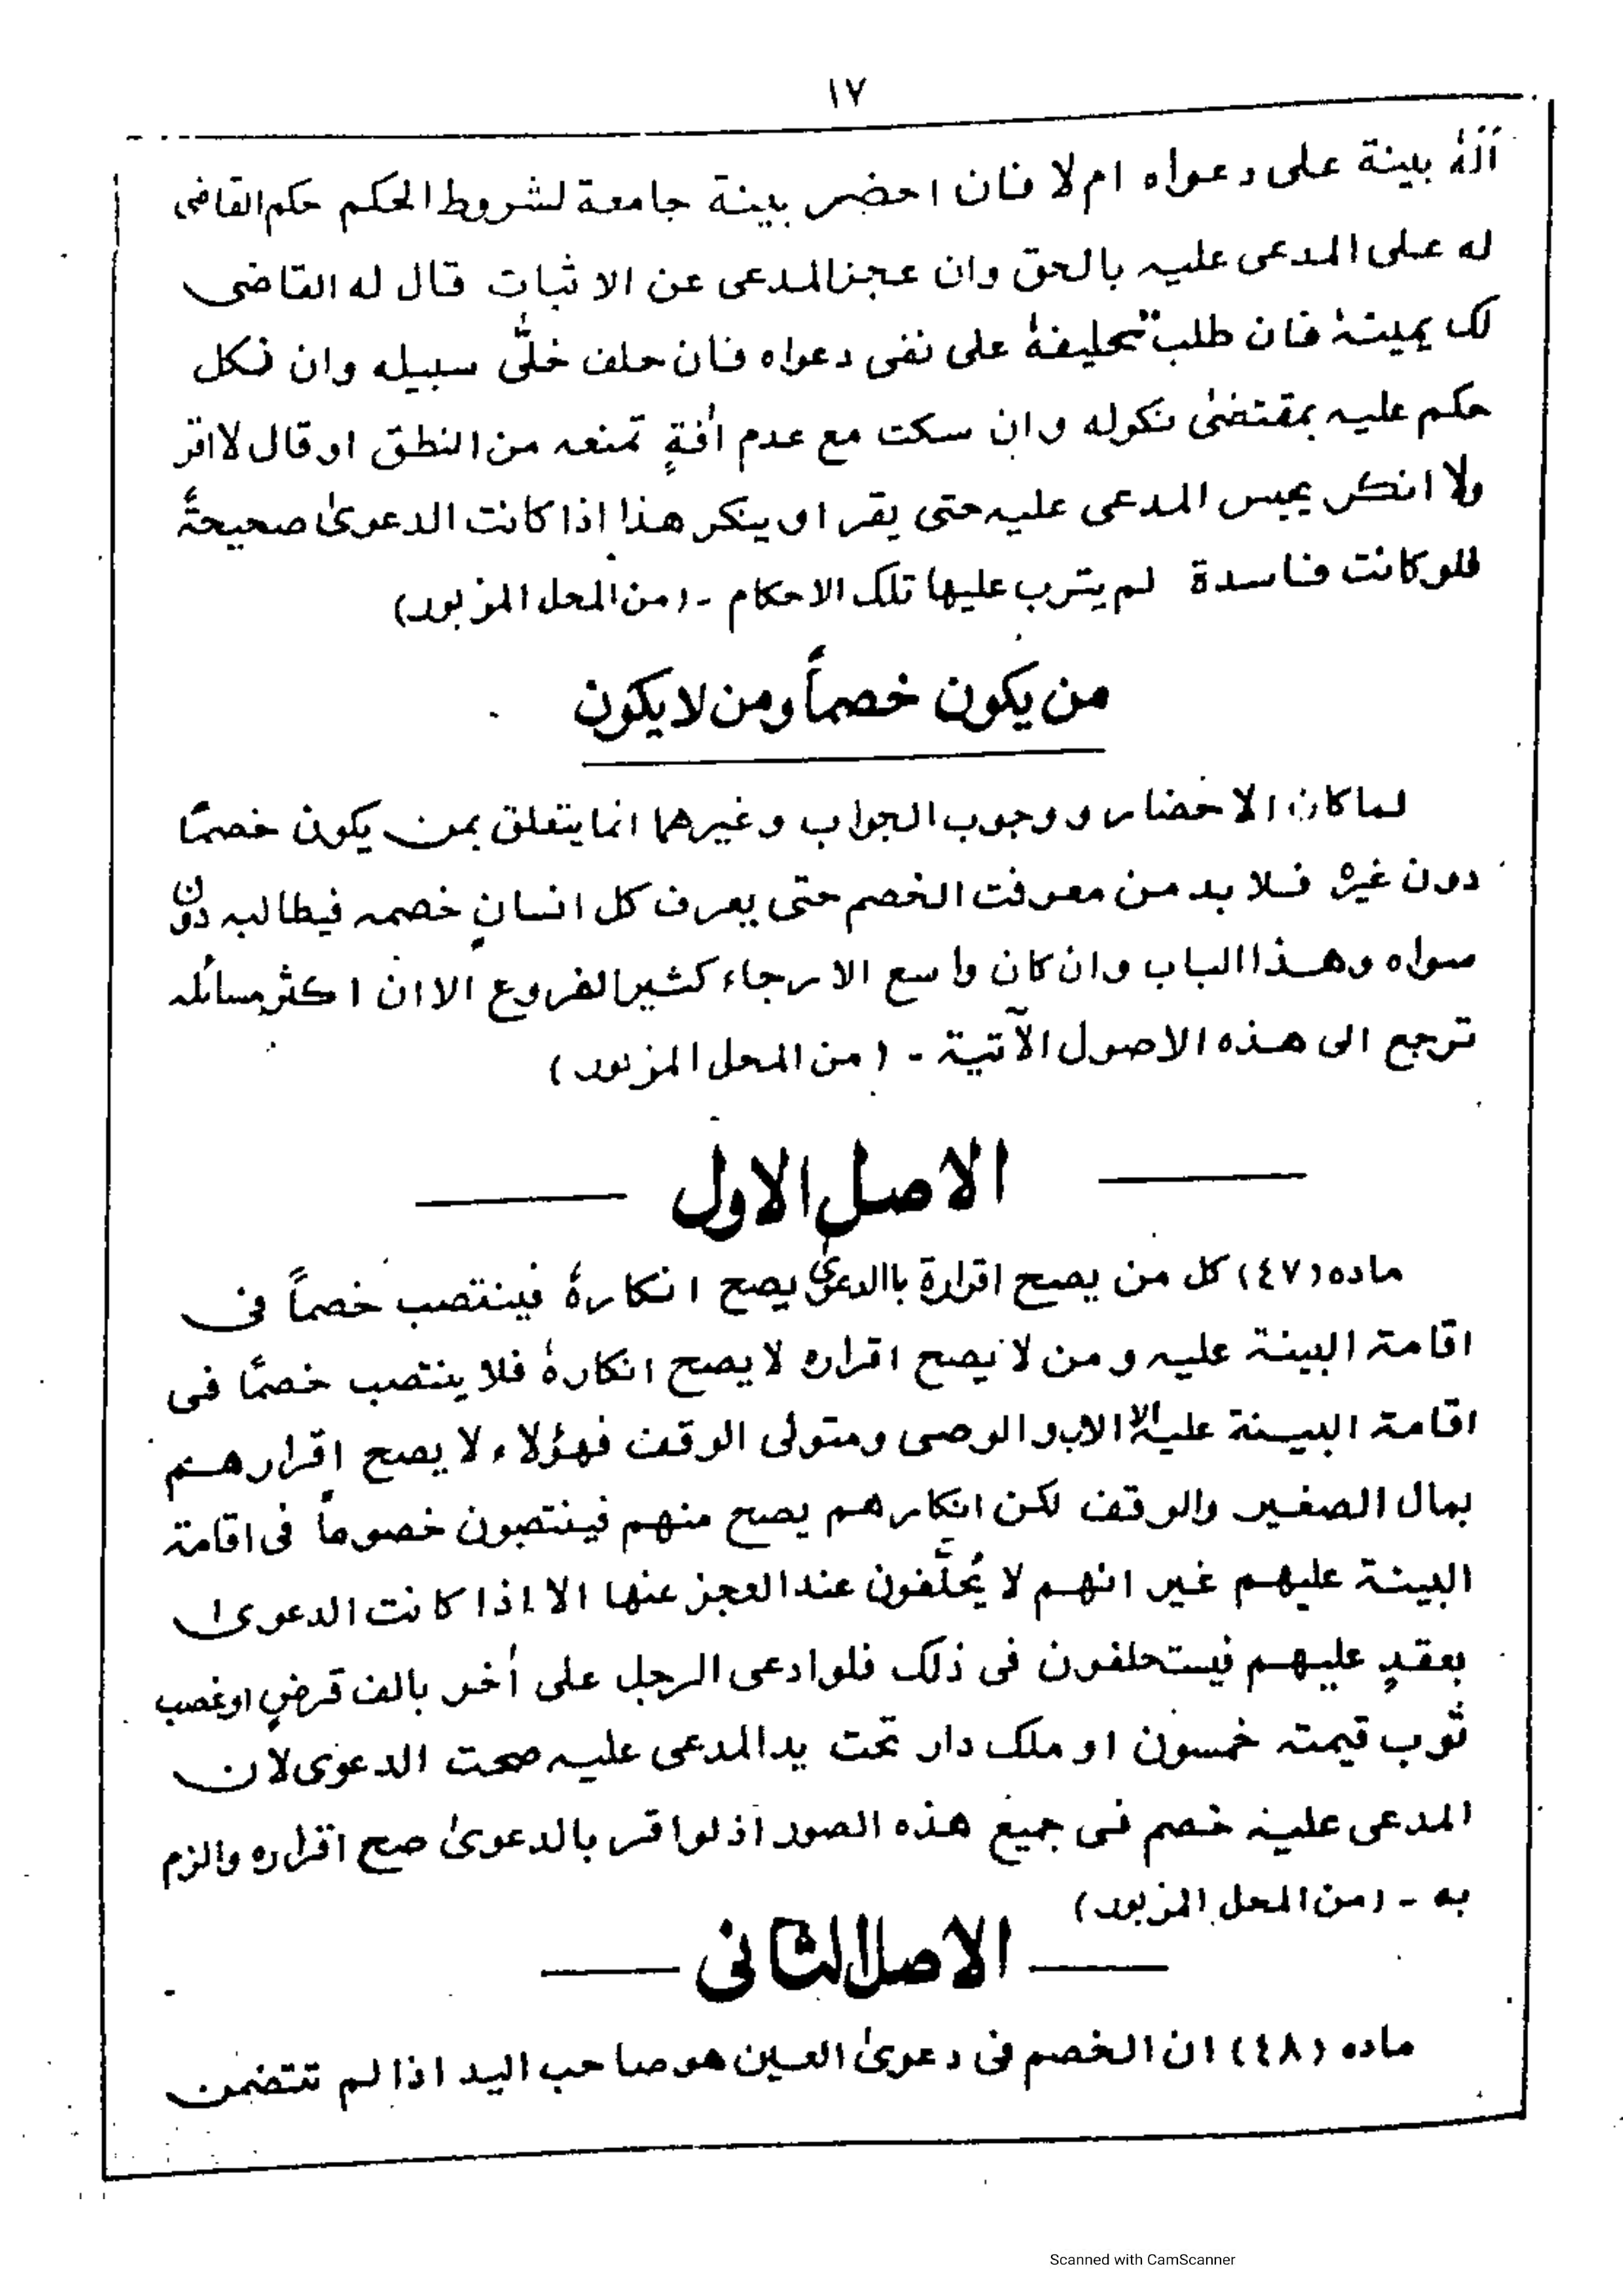 ١٧
ألهٗ بينة على دعواه ام لا فان احضر بينة جامعة لشروط الحكم حكم القاضى
له على المدعى عليه بالحق وان عجز المدعى عن الاثبات قال له القاضى
لك يمينهٗ فان طلب تحليفهٗ على نفى دعواه فان حلف خلّٰى سبيله وان نكل
حكم عليه بمقتضىٰ نكوله وان سكت مع عدم اٰفةٍ تمنعه من النطق او قال لا اقر
ولا انكر يحبس المدعى عليه حتى يقر او ينكر هذا اذا كانت الدعوىٰ صحيحةً
فلو كانت فاسدة لم يترب عليها تلك الاحكام ـ (من المحل المزبور)
من يكون خصماً ومن لا يكون
لما كان الاحضار ووجوب الجواب وغيرهما انما يتعلق بمن يكون خصمًا
دون غيرهٖ فلا بد من معرفت الخصم حتى يعرف كل انسانٍ خصمه فيطالبه دون
سواه وهذا الباب وان كان واسع الارجاء كثير الفروع الا ان اكثر مسائله
ترجع الى هذه الاصول الآتية ـ (من المحل المزبور)
الاصل الاول
ماده (٤٧) كل من يصح اقرارة باالدعوىٰ يصح انكارهٗ فينتصب خصماً فى
اقامة البينة عليه ومن لا يصح اقراره لا يصح انكارهٗ فلا ينتصب خصمًا فى
اقامة البينة عليه الا الاب والوصى ومتولى الوقف فهؤلاء لا يصح اقرارهم
بمال الصغير والوقف لكن انكارهم يصح منهم فينتصبون خصوماً فى اقامة
البينة عليهم غير انهم لا يُحلَّفون عند العجز عنها الا اذا كانت الدعوىٰ
بعقدٍ عليهم فيستحلفون فى ذلك فلو ادعى الرجل على أخر بالف قرضٍ او غصب
ثوب قيمته خمسون او ملك دار تحت يد المدعى عليه صحت الدعوى لان
المدعى عليه خصم فى جميع هذه الصور اذ لو اقر بالدعوىٰ صح اقراره والزم
به ـ (من المحل المزبور)
الاصل الثانى
ماده (٤٨) ان الخصم فى دعوىٰ العين هو صاحب اليد اذا لم تتضمن
Scanned with CamScanner